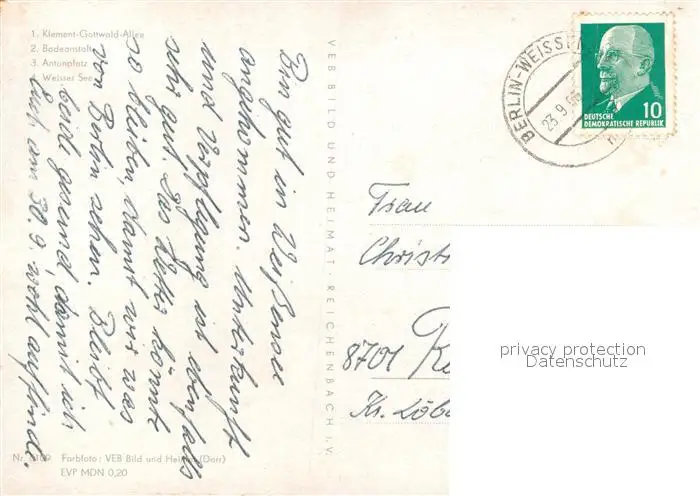 1. Klement-Gottwald-Allee
2. Badeanstalt
3. Antonplatz
4. Weisser See
Bin gut in Weißensee
angekommen. Unterkunft
und Verpflegung ist ebenfalls
sehr gut. Das Wetter könnte
so bleiben, damit wir was
von Berlin sehen. Bleibt
beide gesund, damit ich
Euch am 30.9. wohl auffinde.
VEB BILD UND HEIMAT · REICHENBACH I.V.
Nr. 109 Farbfoto: VEB Bild und Heimat (Darr)
EVP MDN 0,20
BERLIN-WEISSEN
23.9.
10
DEUTSCHE
DEMOKRATISCHE REPUBLIK
Frau
Christ
8701
Kr. Löb
privacy protection
Datenschutz